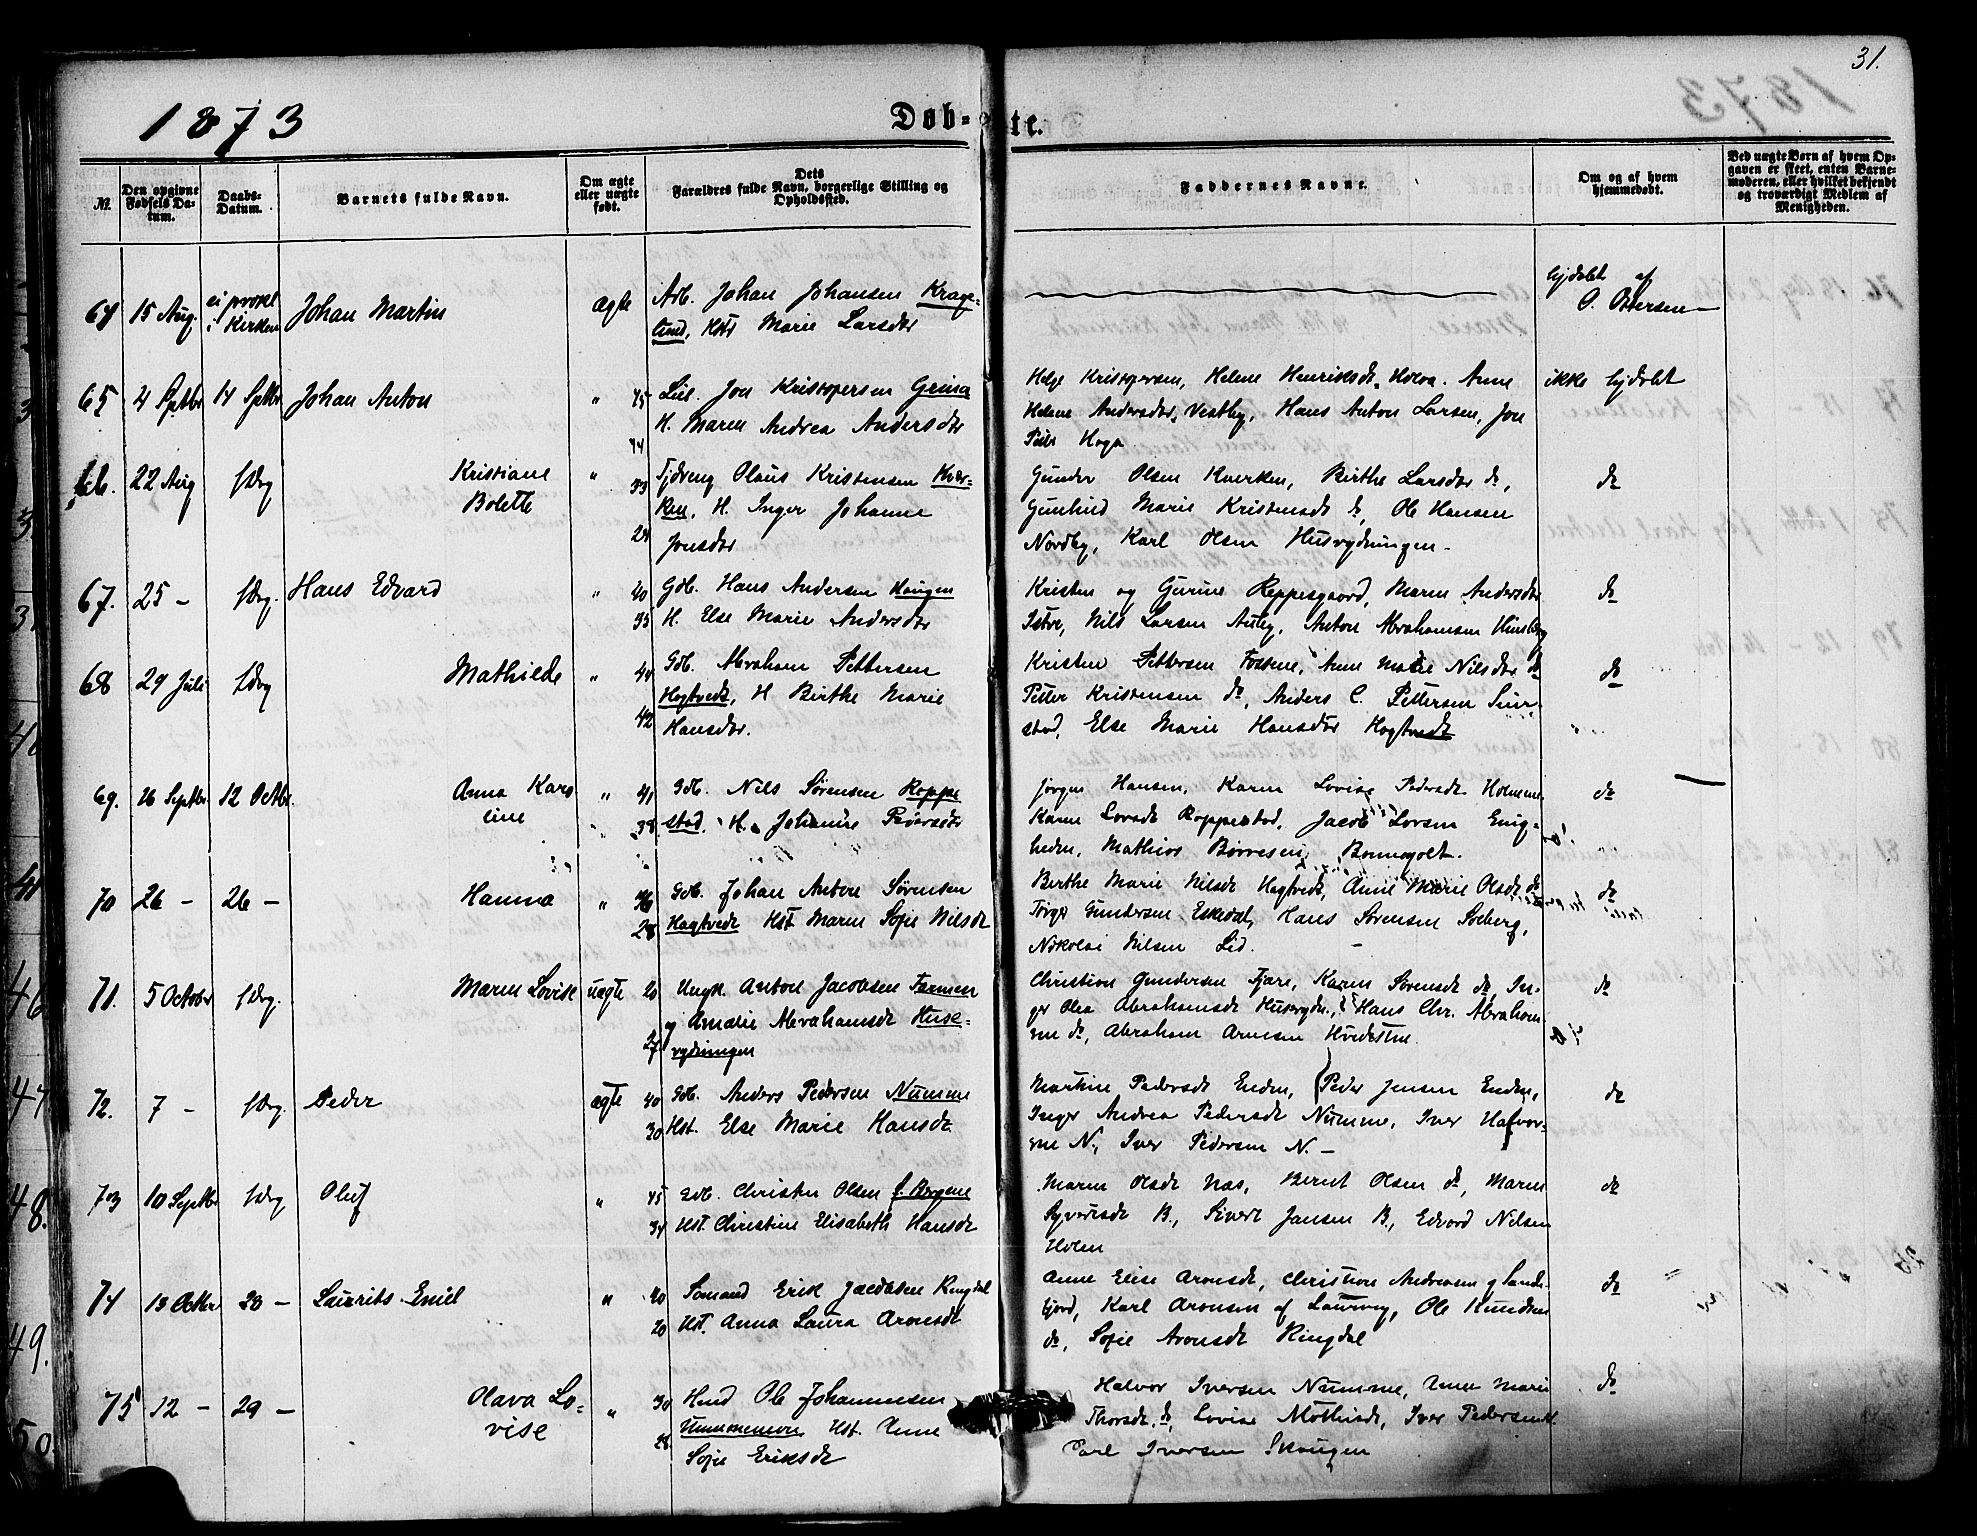 31.
1873
Døb-te.
№
Den opgivne Fødsels Datum.
Daabs-Datum.
Barnets fulde Navn.
Om ægte eller uægte født.
Dets Forældres fulde Navn, borgerlige Stilling og Opholdssted.
Faddernes Navne.
Om og af hvem hjemmedøbt.
Ved uægte Børn af hvem Opgaven er skeet, enten Barnemoderen, eller hvilket bekjendt og troværdigt Medlem af Menigheden.
64 15 Aug. i Kirken Johan Martin ægte Arb. Johan Johansen Krage-
lund, Hst Marie Larsdtr
hjdøbt af
65 4 Septbr 14 Septbr Johan Anton " 45 Jon Kristopersen Grina
44 H. Maren Andrea Andersdtr
Helge Kristopersen, Helene Henriksdt. Holva. Anne
Helene Andersdtr, Vestby, Hans Anton Larsen, Jon
Haga
ikke hjdøbt
66. 22 Aug Kristiane Bolette " 33 Olaus Kristensen Kver-
ken, H. Inger Johanne
Jonsdtr
Gunder Olsen Kverken, Birthe Larsdtr do,
Marie Kristensdt do, Ole Hansen
Nordby, Karl Olsen Husrydningen -
do
67. 25 - Hans Edvard " 40 Gdb. Hans Andersen Haugen
35 H. Else Marie Andersdtr
Kristen og Gurine Reppesgaard, Maren Andersdtr
Istre, Nils Larsen Auby, Anton Abrahamsen
do
68 29 Juli Mathilde " 44 Gdb. Abraham Pettersen
42 Hogtvedt, H Birthe Marie
Hansdtr.
Kristen Pettersen Fossene, Anne Marie Nilsdtr do
Petter Kristensen do, Anders C. Pettersen
stad, Else Marie Hansdtr Hogtvedt
do
69. 16 Septbr. 12 Octbr. Anna Karo
line " 41 Gdb. Nils Sørensen Roppe
38 stad. H.
Jørgen Hansen, Karen Lovise Pedersdt. Holmene
Karen Larsdt Roppestad, Jacob Larsen Enig-
heden, Mathias Børresen, Bonnegolt.
do
70 26 - 26 - Hanna " 36 Gdb. Johan Anton Sørensen
28 Hagtvedt Hst Maren Sofie Nilsdt
Berthe Marie Nilsdt Hagtvedt, Anne Marie Olsdt do
Torger Gundersen Eskedal, Hans Sørensen Soeberg,
Nikolai Nilsen Lid. -
do
71. 5 October Maren Lovise uægte 20 Ungk. Anton Jacobsen Farmen
27 og Amalie Abrahamsdt Huse-
rydningen
Christian Gundersen Fjære, Karen Sørensdt do, In-
ger Olea Abrahamsdt Husrydn., Hans Chr. Abraham
sen do, Abraham Arnesen Hvidesten
do
72. 7 - Peder ægte 40 Gdb. Anders Pedersen Numme
30 Hst. Else Marie Hansdt
Martine Pedersdt Enden, Peder Jensen Enden,
Inger Andrea Pedersdt Numme, Iver Halvor-
sen N., Iver Pedersen N. -
do
73 10 Septbr Oluf " 45 Gdb. Christen Olsen Bergene
34 Hst. Christine Elisabeth Hansdt
Maren Olsdt Næs, Bernt Olsen do, Maren
Syvertsdt B., Sivert Jansen B., Edvard Nilsen
Holen
do
74 13 Octbr 28 - Laurits Emil " 20 Sømand Erik Jacobsen Ringdal
20 Hst. Anna Laura Aronsdt
Anne Elise Aronsdt, Christian Andreasen Sande-
fjord, Karl Aronsen af Laurvig, Ole Knudsen
do, Sofie Aronsdt Ringdal
do
75 12 - 29 - Olava Lo-
vise " 30 Hmd Ole Johannesen
28 Nummemoen Hst. Anne
Sofie Eriksdt
Halvor Iversen Numme, Anne Marie
Thorsdt. do, Lovise Mathisdt, Iver Pedersen
Carl Iversen Skougen
do